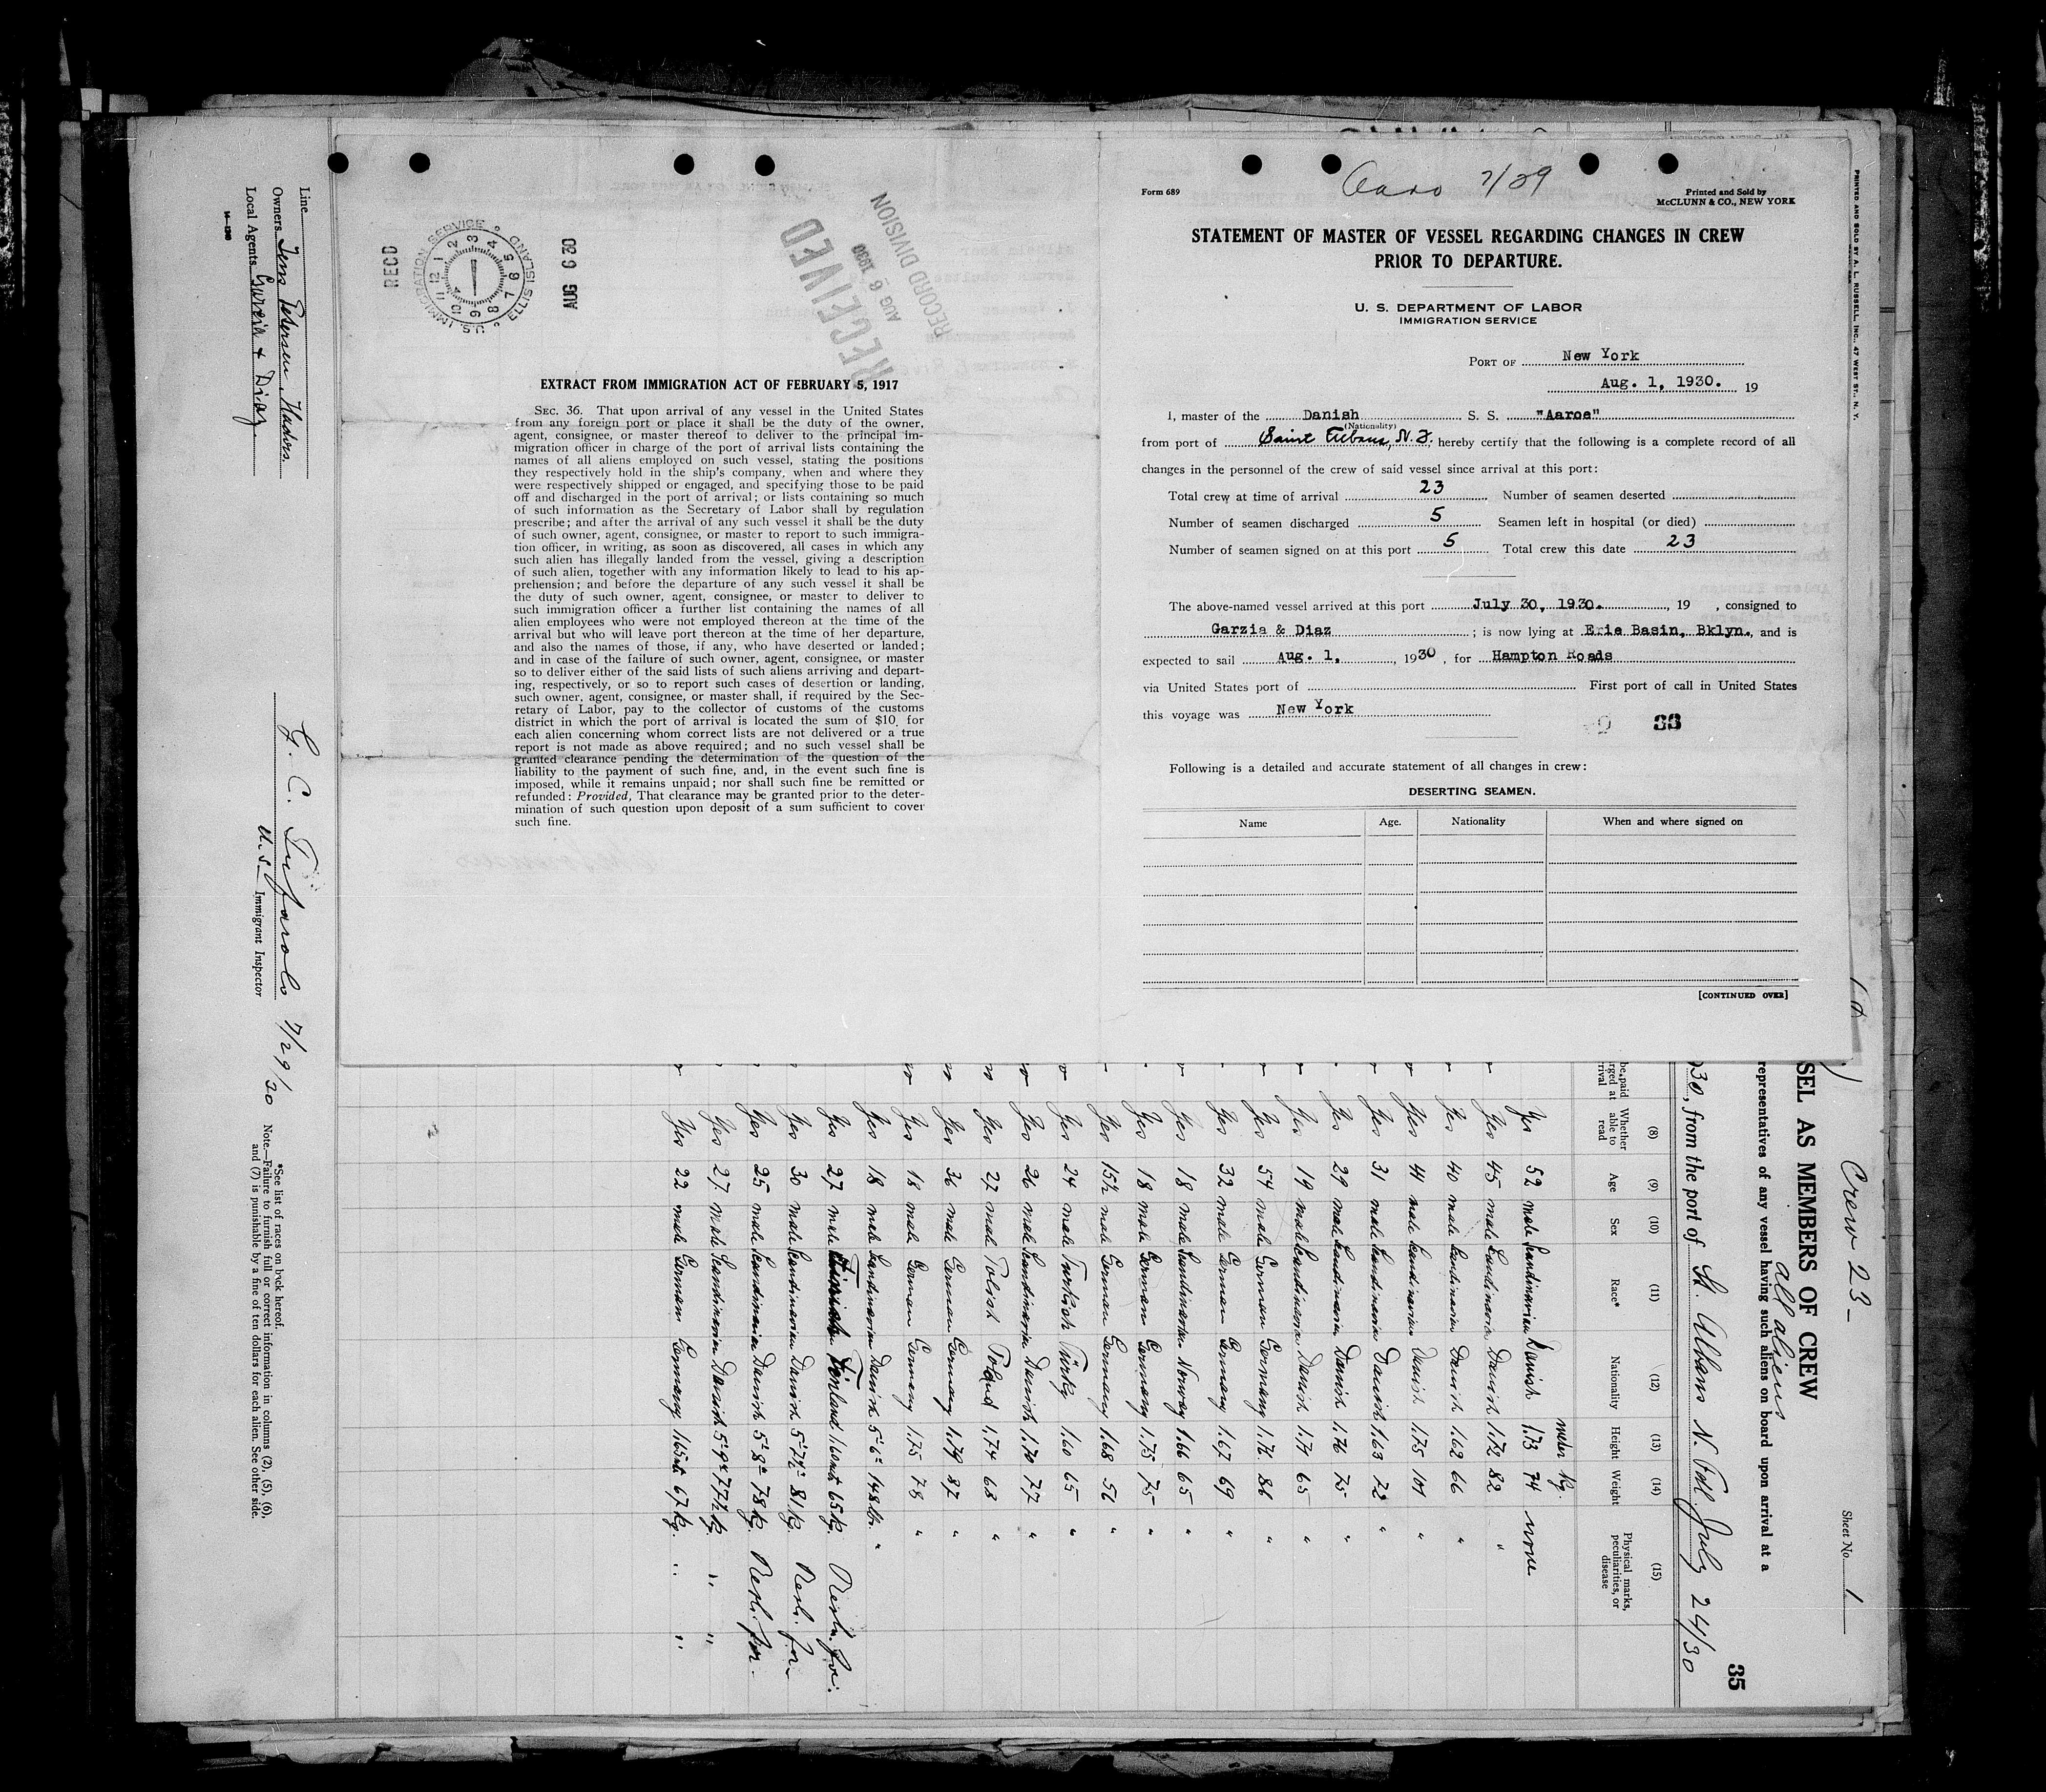 Form 689
7/29
Printed and Sold by
McCLUNN & CO., NEW YORK
STATEMENT OF MASTER OF VESSEL REGARDING CHANGES IN CREW
PRIOR TO DEPARTURE.
U. S. DEPARTMENT OF LABOR
IMMIGRATION SERVICE
PORT OF New York
Aug. 1, 1930. 19
I, master of the Danish S. S. "Aaroe"
(Nationality)
from port of Saint , hereby certify that the following is a complete record of all
changes in the personnel of the crew of said vessel since arrival at this port:
Total crew at time of arrival 23 Number of seamen deserted
Number of seamen discharged 5 Seamen left in hospital (or died)
Number of seamen signed on at this port 5 Total crew this date 23
The above-named vessel arrived at this port July 30, 1930. , 19 , consigned to
Garzia & Diaz ; is now lying at Erie Basin, Bklyn., and is
expected to sail Aug. 1, , 1930 , for Hampton Roads
via United States port of First port of call in United States
this voyage was New York
33
Following is a detailed and accurate statement of all changes in crew:
DESERTING SEAMEN.
Name Age. Nationality When and where signed on
[CONTINUED OVER]
PRINTED AND SOLD BY A. L. RUSSELL, INC., 47 WEST ST., N. Y.
RECD
U.S. IMMIGRATION SERVICE
ELLIS ISLAND
AUG 6 30
RECEIVED
AUG 6 1930
RECORD DIVISION
EXTRACT FROM IMMIGRATION ACT OF FEBRUARY 5, 1917
SEC. 36. That upon arrival of any vessel in the United States
from any foreign port or place it shall be the duty of the owner,
agent, consignee, or master thereof to deliver to the principal im-
migration officer in charge of the port of arrival lists containing the
names of all aliens employed on such vessel, stating the positions
they respectively hold in the ship's company, when and where they
were respectively shipped or engaged, and specifying those to be paid
off and discharged in the port of arrival; or lists containing so much
of such information as the Secretary of Labor shall by regulation
prescribe; and after the arrival of any such vessel it shall be the duty
of such owner, agent, consignee, or master to report to such immigra-
tion officer, in writing, as soon as discovered, all cases in which any
such alien has illegally landed from the vessel, giving a description
of such alien, together with any information likely to lead to his ap-
prehension; and before the departure of any such vessel it shall be
the duty of such owner, agent, consignee, or master to deliver to
such immigration officer a further list containing the names of all
alien employees who were not employed thereon at the time of the
arrival but who will leave port thereon at the time of her departure,
and also the names of those, if any, who have deserted or landed;
and in case of the failure of such owner, agent, consignee, or master
so to deliver either of the said lists of such aliens arriving and depart-
ing, respectively, or so to report such cases of desertion or landing,
such owner, agent, consignee, or master shall, if required by the Sec-
retary of Labor, pay to the collector of customs of the customs
district in which the port of arrival is located the sum of $10 for
each alien concerning whom correct lists are not delivered or a true
report is not made as above required; and no such vessel shall be
granted clearance pending the determination of the question of the
liability to the payment of such fine, and, in the event such fine is
imposed, while it remains unpaid; nor shall such fine be remitted or
refunded: Provided, That clearance may be granted prior to the deter-
mination of such question upon deposit of a sum sufficient to cover
such fine.
Crew 23- Sheet No. 1
SEL AS MEMBERS OF CREW
all aliens
representatives of any vessel having such aliens on board upon arrival at a
35
30, from the port of St. Albans N. Fdl. July 24/30
(8) (9) (10) (11) (12) (13) (14) (15)
Whether able to read Age Sex Race* Nationality Height Weight Physical marks, peculiarities, or disease
meter kg.
Yes 52 male Scandinavian Danish 1.73 74 none
Yes 45 male Scandinavia Danish 1.72 82 "
Yes 40 male Scandinavia Danish 1.62 66 "
Yes 41 male Scandinavian Danish 1.75 101 "
Yes 31 male Scandinavia Danish 1.63 72 "
Yes 29 male Scandinavia Danish 1.76 75 "
Yes 19 male Scandinavia Danish 1.71 65 "
Yes 54 male German Germany 1.72 86 "
Yes 32 male German Germany 1.67 69 "
Yes 18 male Scandinavian Norway 1.66 65 "
Yes 18 male German Germany 1.75 75 "
Yes 15½ male German Germany 1.68 56 "
Yes 24 male Turkish Türky 1.60 65 "
Yes 26 male Scandinavia Danish 1.70 77 "
Yes 27 male Polish Poland 1.74 68 "
Yes 36 male German Germany 1.79 87 "
Yes 18 male German Germany 1.75 78 "
Yes 18 male Scandinavian Danish 5'6" 148 lbs. "
Yes 27 male Finland 65 kg.
Yes 30 male Scandinavian Danish 5'7½" 81 kg.
Yes 25 male Scandinavian Danish 5'8" 78 kg.
Yes 27 male Scandinavian Danish 5'9" 77½ kg. " "
Yes 22 male German Germany 67 kg. " "
Line
Owners Jens Petersen
Local Agents Garcia & Diaz
14-1240
G. C. Tufarolo 7/29/30
U.S. Immigrant Inspector
*See list of races on back hereof.
Note—Failure to furnish full or correct information in columns (2), (5), (6),
and (7) is punishable by a fine of ten dollars for each alien. See other side.